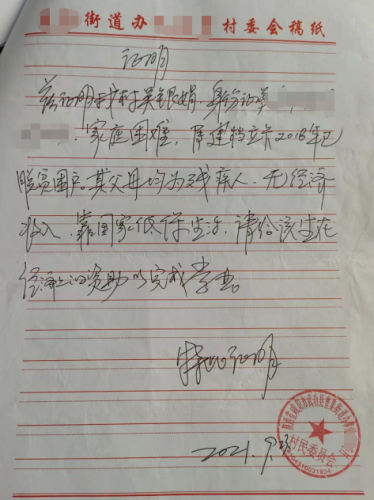 街道办 村委会稿纸
证明
兹证明我村吴银娟,身份证号
家庭困难,属建档立卡2018年已
脱贫困户,其父母均为残疾人,无经济
收入,靠国家低保生活,请给该生在
经济上的资助以完成学业。
特此证明
2021.9.
村民委员会